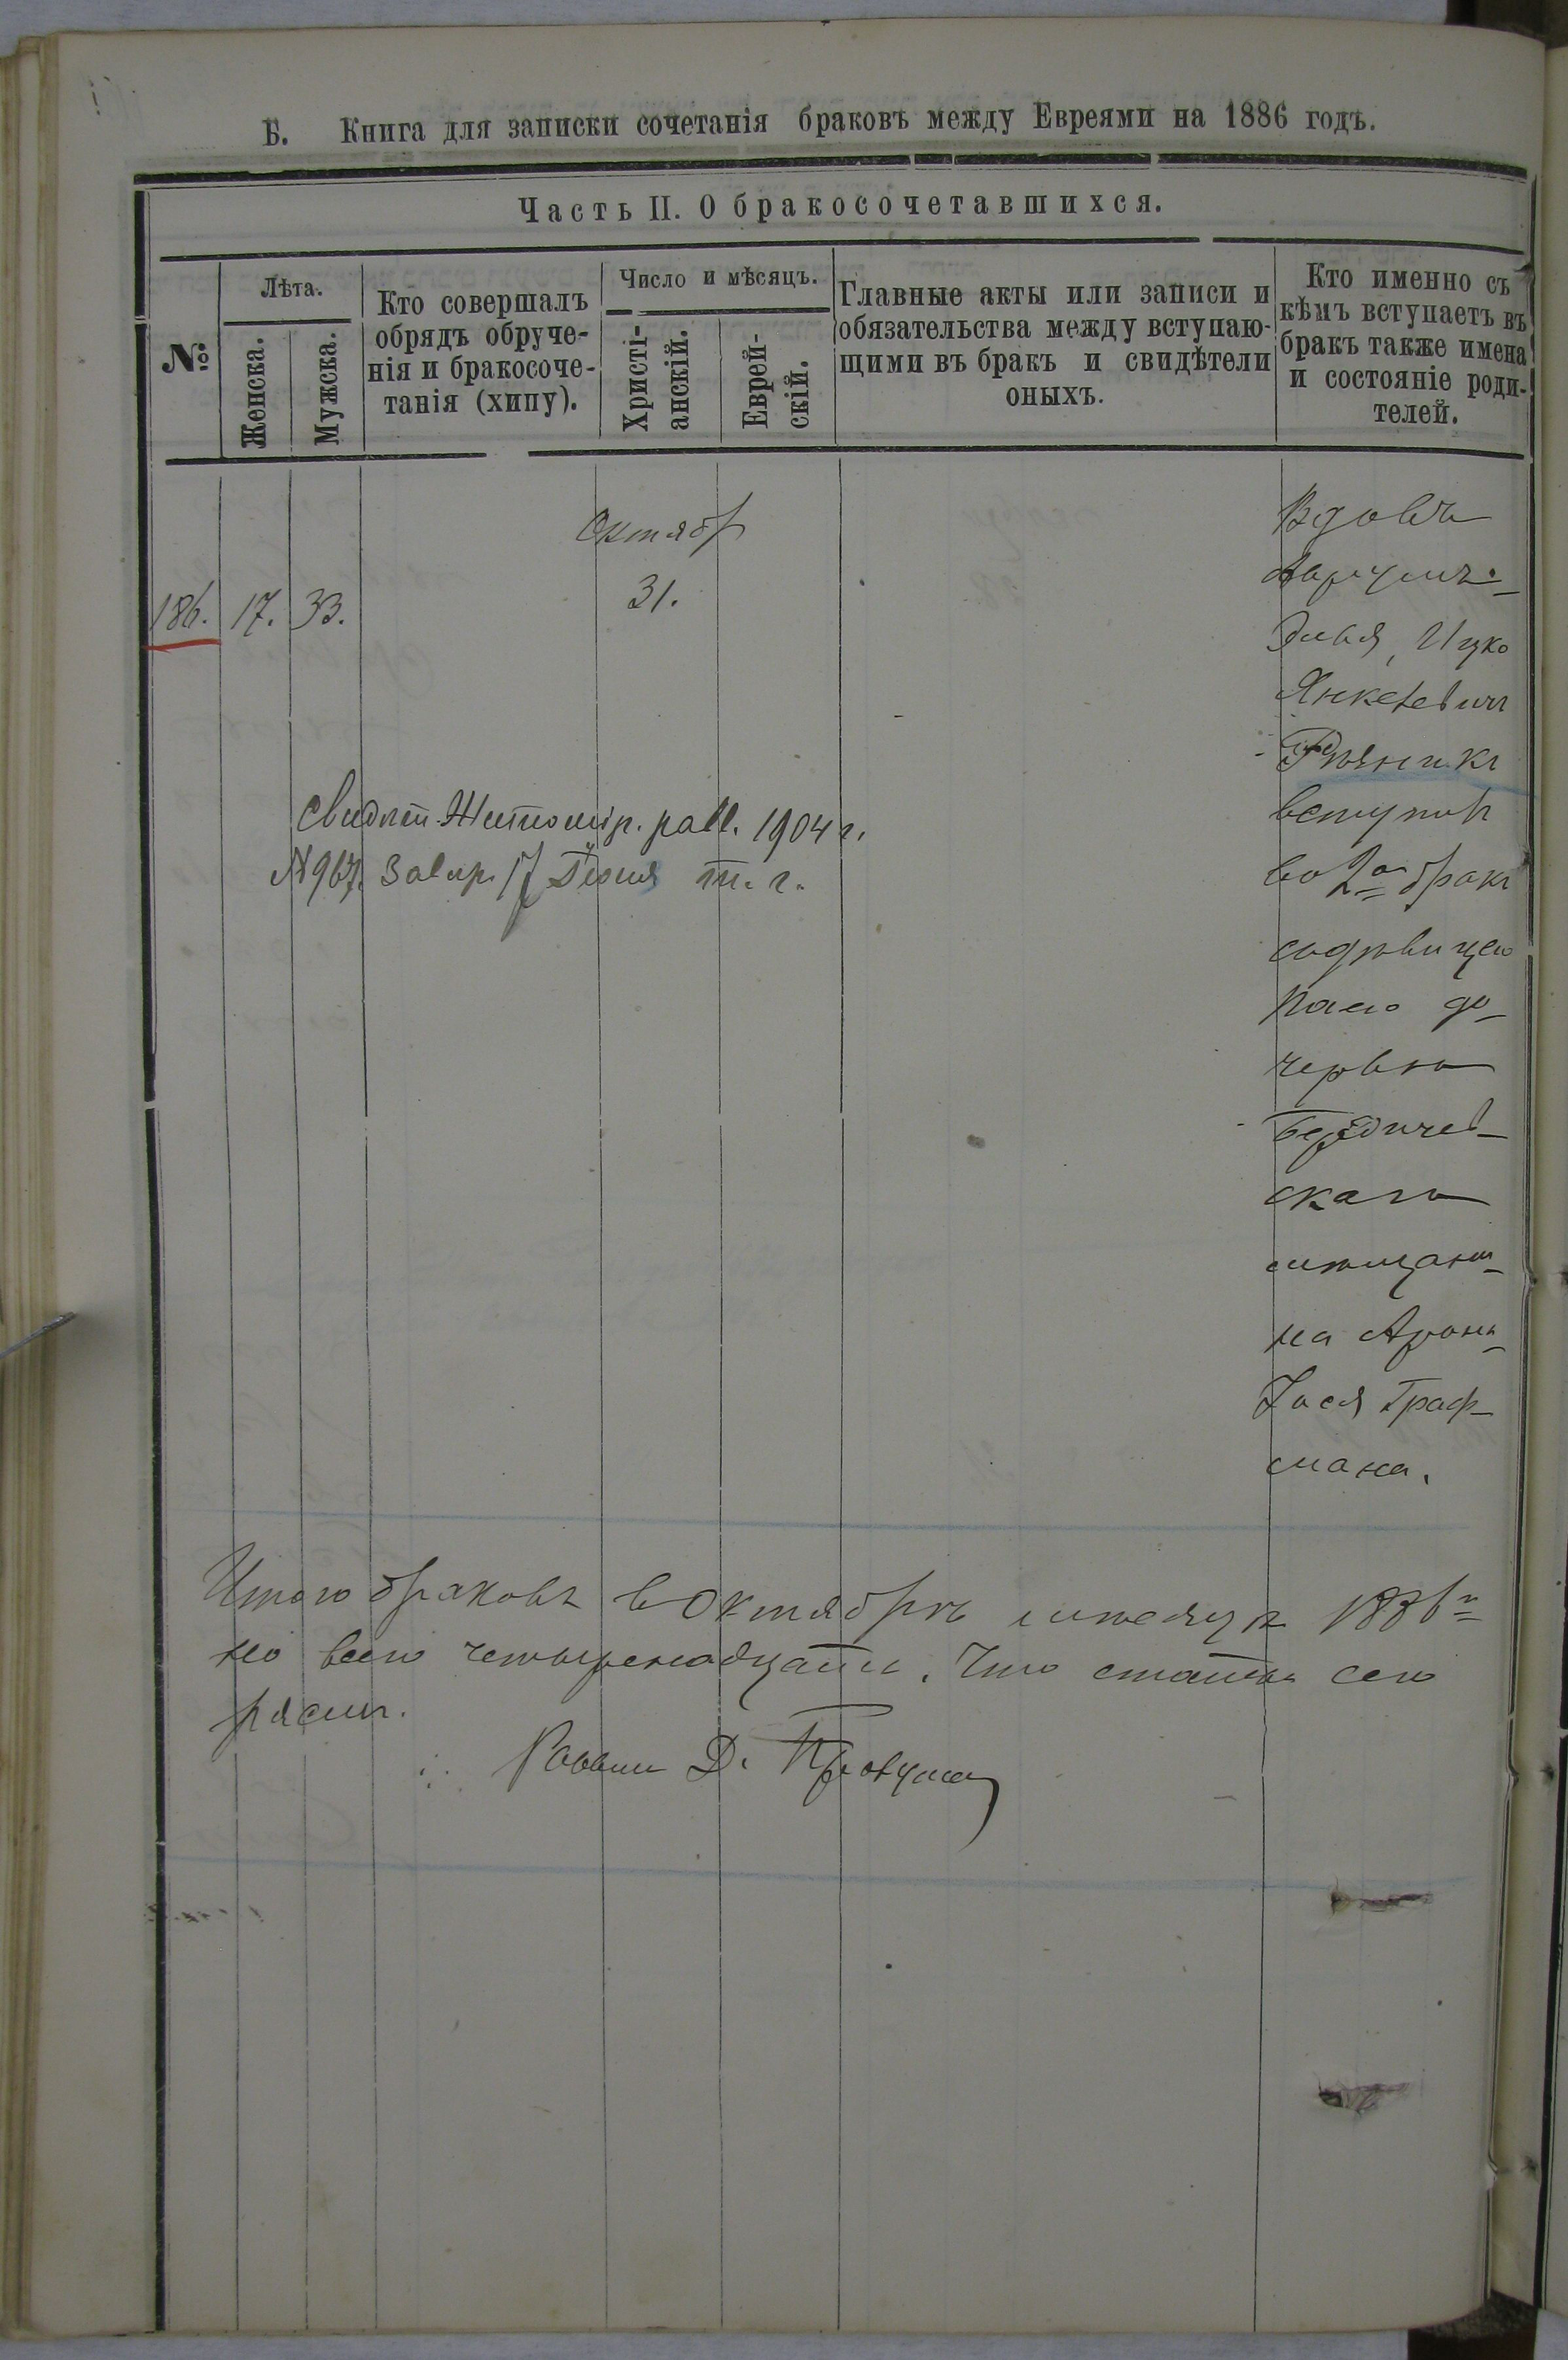 Б. Книга для записки сочетанія браковъ между Евреями на 1886 годъ.
Часть II. О бракосочетавшихся.
№
Лѣта.
Женска.
Мужска.
Кто совершалъ
обрядъ обруче-
нія и бракосоче-
танія (хипу).
Число и мѣсяцъ.
Христі-
анскій.
Еврей-
скій.
Главные акты или записи и
обязательства между вступаю-
щими въ бракъ и свидѣтели
оныхъ.
Кто именно съ
кѣмъ вступаетъ въ
бракъ также имена
и состояніе роди-
телей.
186. 17. 33.
Октябр
31.
Вдовъ
Эллья, Ицко
Янкелевичъ
вступилъ
во 2й бракъ
съ дѣвицею
дочерью
Бердичев-
скаго
мѣщани-
на Аронъ
Іося Граф-
мана.
Свидѣт. Житомір. равв. 1904 г.
№ 967. Завѣр. 17 Іюня т. г.
Итого браковъ в Октябрѣ мѣсяцѣ 1886 г
но всего четыренадцать. Что статьи сею
Раввин Д.